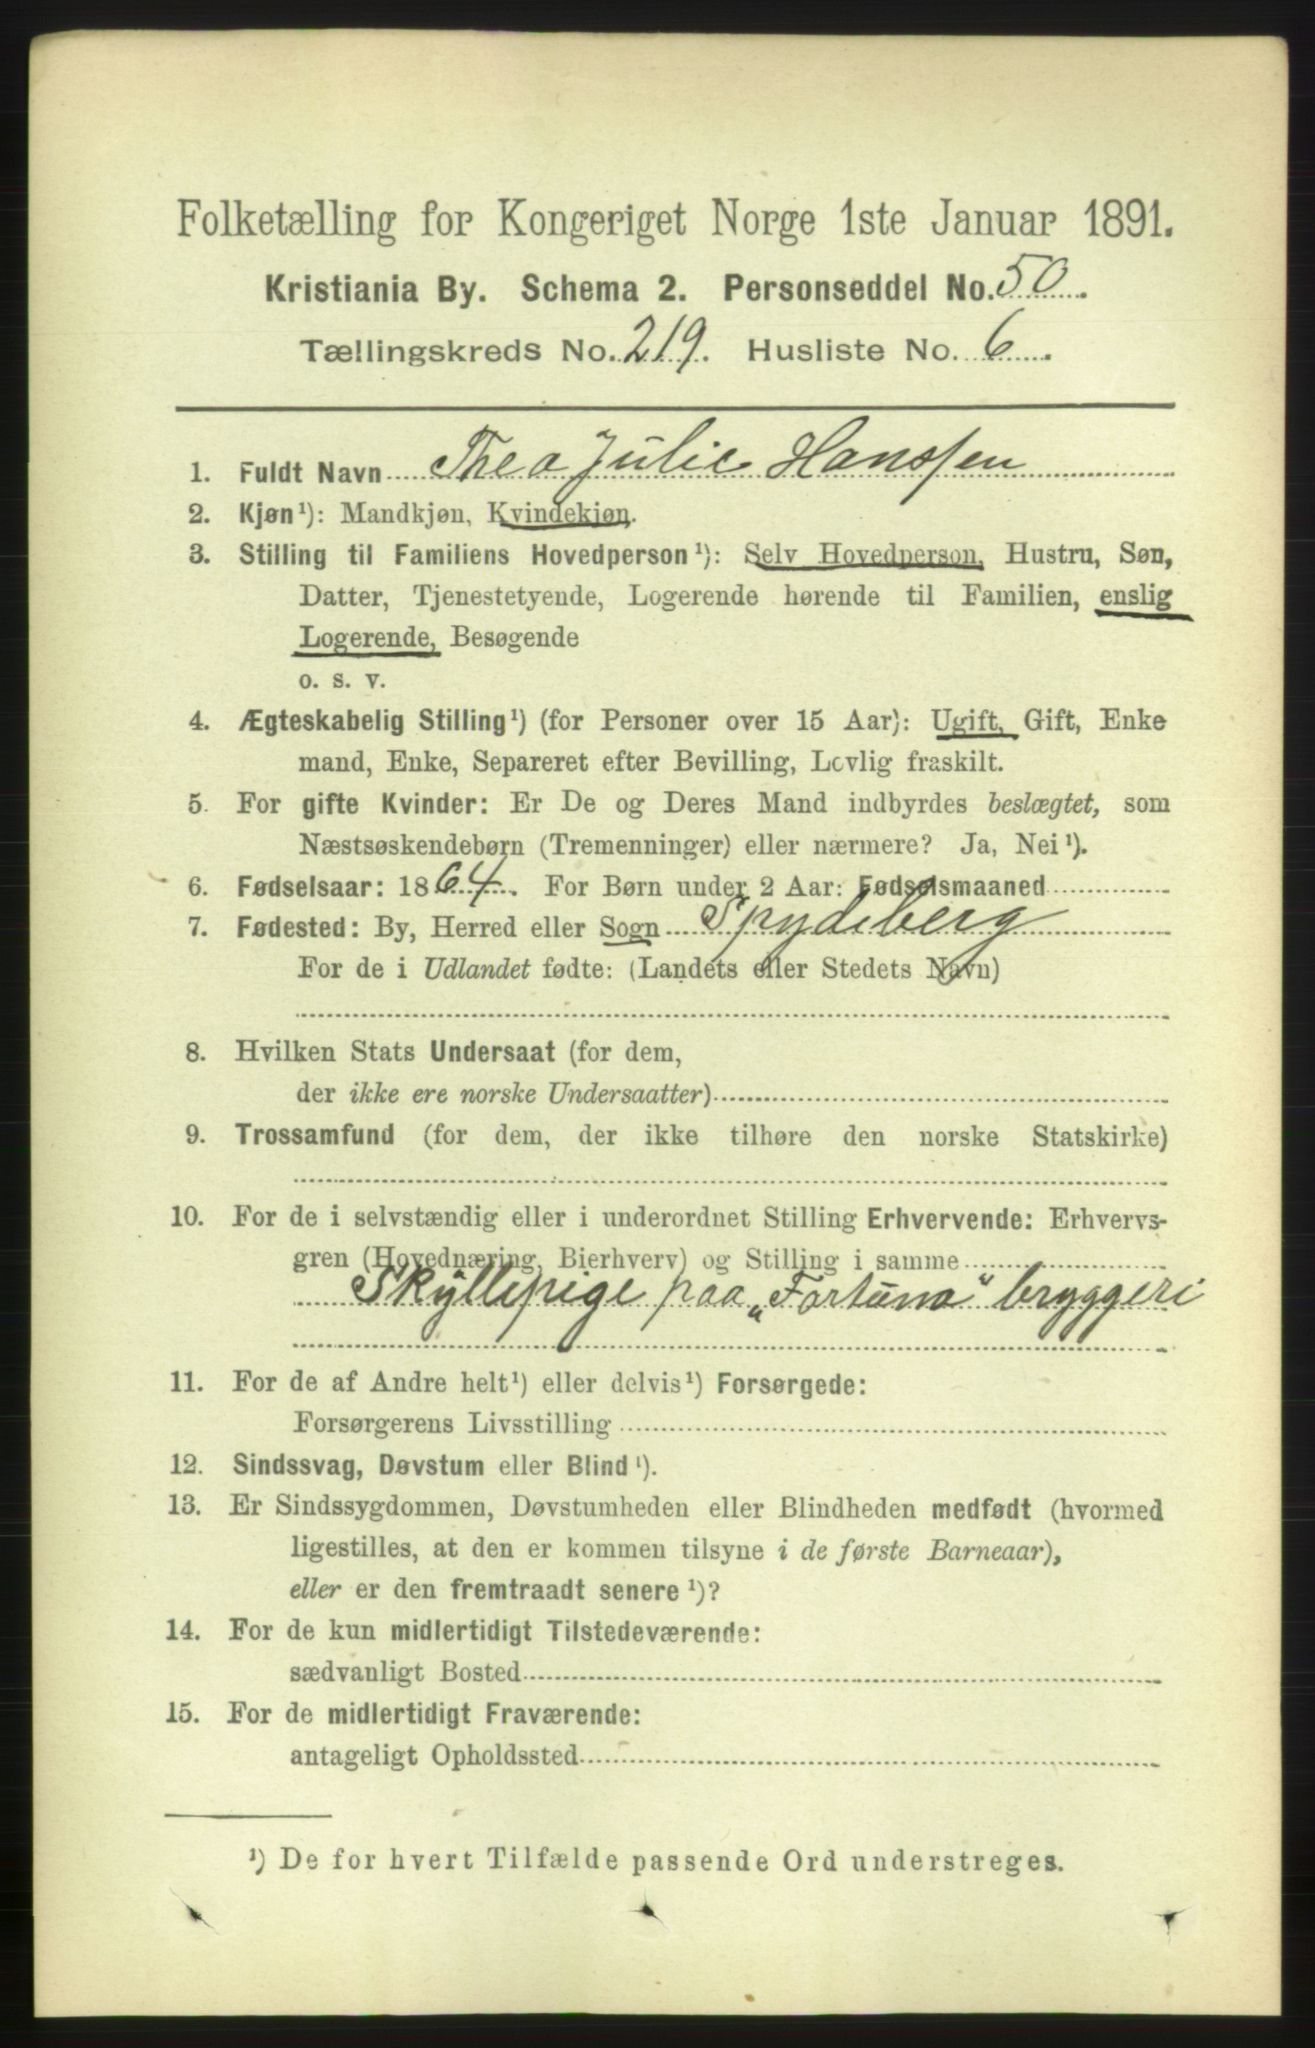 Folketælling for Kongeriget Norge 1ste Januar 1891.
Kristiania By. Schema 2. Personseddel No. 50.
Tællingskreds No. 219. Husliste No. 6.
1. Fuldt Navn Thea Julie Hanssen
2. Kjøn¹): Mandkjøn, Kvindekjøn.
3. Stilling til Familiens Hovedperson¹): Selv Hovedperson, Hustru, Søn,
Datter, Tjenestetyende, Logerende hørende til Familien, enslig
Logerende, Besøgende
o. s. v.
4. Ægteskabelig Stilling¹) (for Personer over 15 Aar): Ugift, Gift, Enke
mand, Enke, Separeret efter Bevilling, Lovlig fraskilt.
5. For gifte Kvinder: Er De og Deres Mand indbyrdes beslægtet, som
Næstsøskendebørn (Tremenninger) eller nærmere? Ja, Nei¹).
6. Fødselsaar: 1864. For Børn under 2 Aar: Fødselsmaaned
7. Fødested: By, Herred eller Sogn Spydeberg
For de i Udlandet fødte: (Landets eller Stedets Navn)
8. Hvilken Stats Undersaat (for dem,
der ikke ere norske Undersaatter)
9. Trossamfund (for dem, der ikke tilhøre den norske Statskirke)
10. For de i selvstændig eller i underordnet Stilling Erhvervende: Erhvervs-
gren (Hovednæring, Bierhverv) og Stilling i samme
Skyllepige paa „Fortuna" bryggeri
11. For de af Andre helt¹) eller delvis¹) Forsørgede:
Forsørgerens Livsstilling
12. Sindssvag, Døvstum eller Blind¹).
13. Er Sindssygdommen, Døvstumheden eller Blindheden medfødt (hvormed
ligestilles, at den er kommen tilsyne i de første Barneaar),
eller er den fremtraadt senere¹)?
14. For de kun midlertidigt Tilstedeværende:
sædvanligt Bosted
15. For de midlertidigt Fraværende:
antageligt Opholdssted
¹) De for hvert Tilfælde passende Ord understreges.